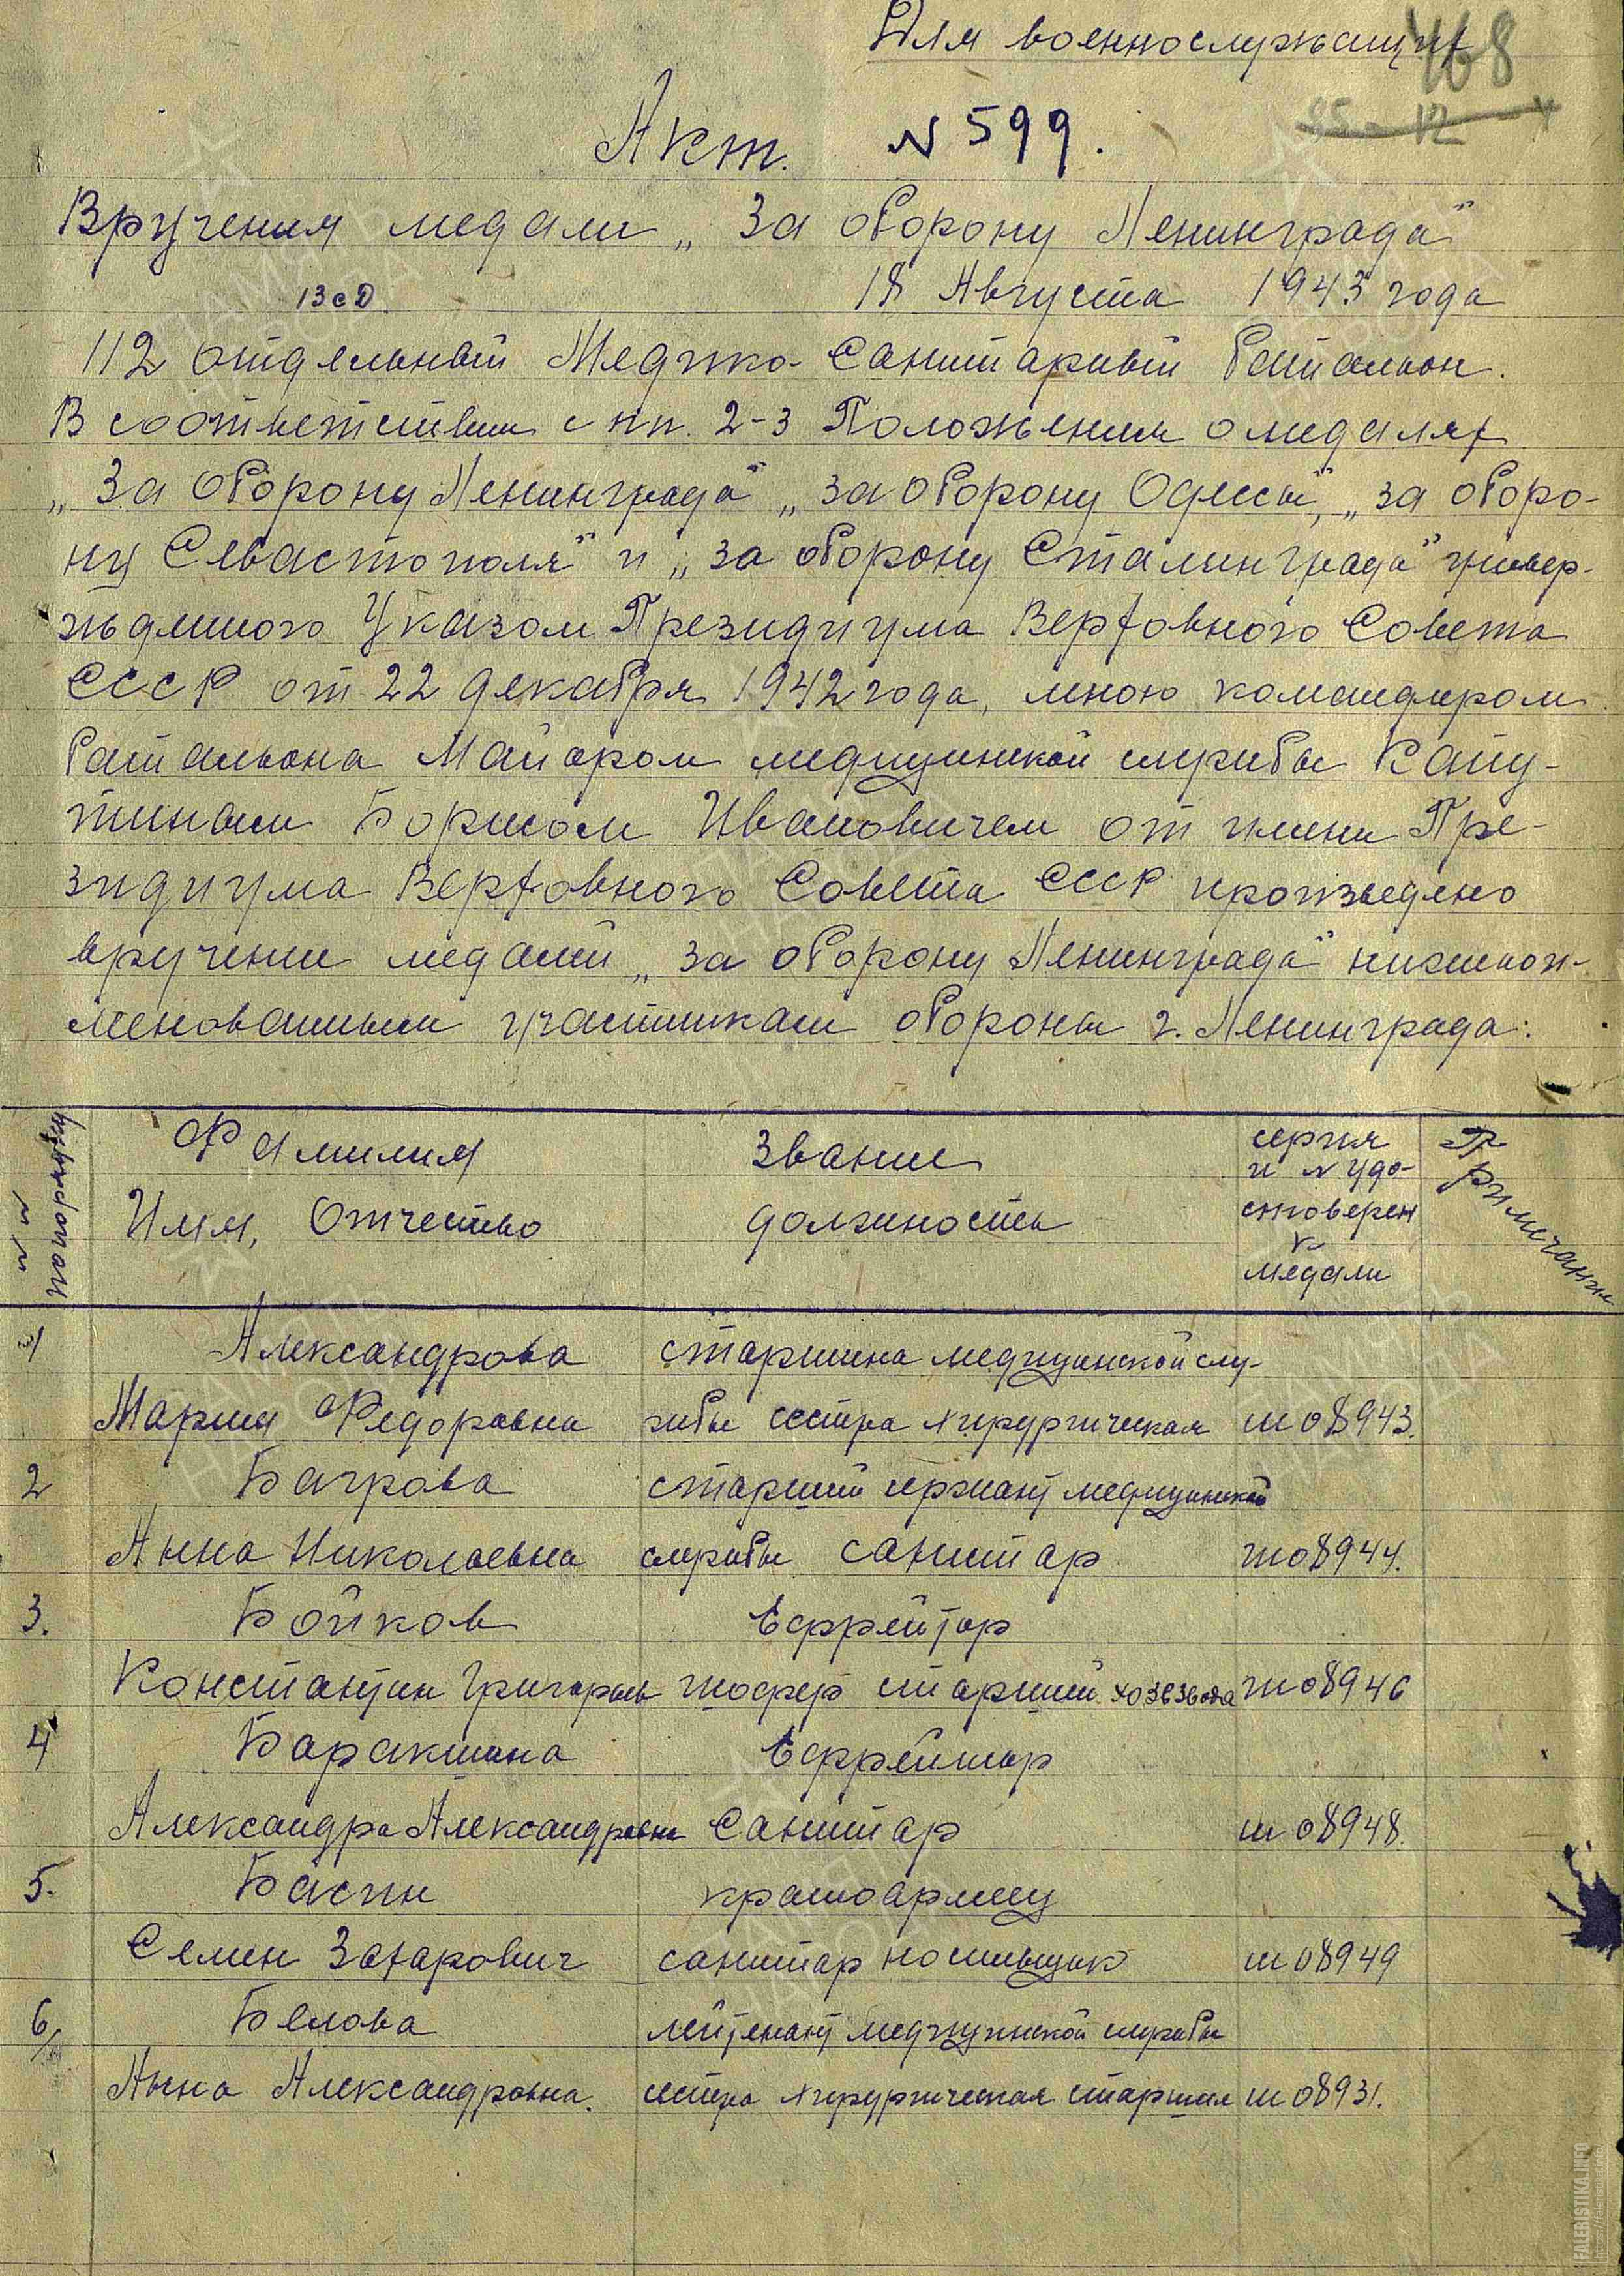 Для военнослужащих
468
Акт. N 599.
Вручения медали „За оборону Ленинграда"
13 сд. 18 Августа 1943 года
112 отдельный Медико-Санитарный батальон.
В соответствии с пп. 2-3 Положения о медалях
„За оборону Ленинграда" „за оборону Одессы", „за оборо-
ну Севастополя" и „за оборону Сталинграда" утвер-
жденного Указом Президиума Верховного Совета
СССР от 22 декабря 1942 года, мною командиром
батальона Майором медицинской службы
Борисом Ивановичем от имени Пре-
зидиума Верховного Совета СССР произведено
вручение медалей „за оборону Ленинграда" нижепои-
менованным участникам обороны г. Ленинграда:
Фамилия
Имя, Отчество
Звание
должность
серия
и N удо-
стоверен
к
медали
Примечание
1/ Александрова старшина медицинской слу-
Мария Федоровна жбы сестра хирургическая ш 08943.
2 Багрова старший сержант медицинской
Анна Николаевна службы санитар ш 08944.
3. Бойков Ефрейтор
Константин Григорьев шофер старший хозвзвода ш 08946
4 Баракшина Ефрейтор
Александра Александровна Санитар ш 08948.
5. Басин красноармеец
Семен Захарович санитар носильщик ш 08949
6/ Белова лейтенант медицинской службы
Анна Александровна. сестра хирургическая старшая ш 08931.
ПАМЯТЬ
НАРОДА
FALERISTIKA.INFO